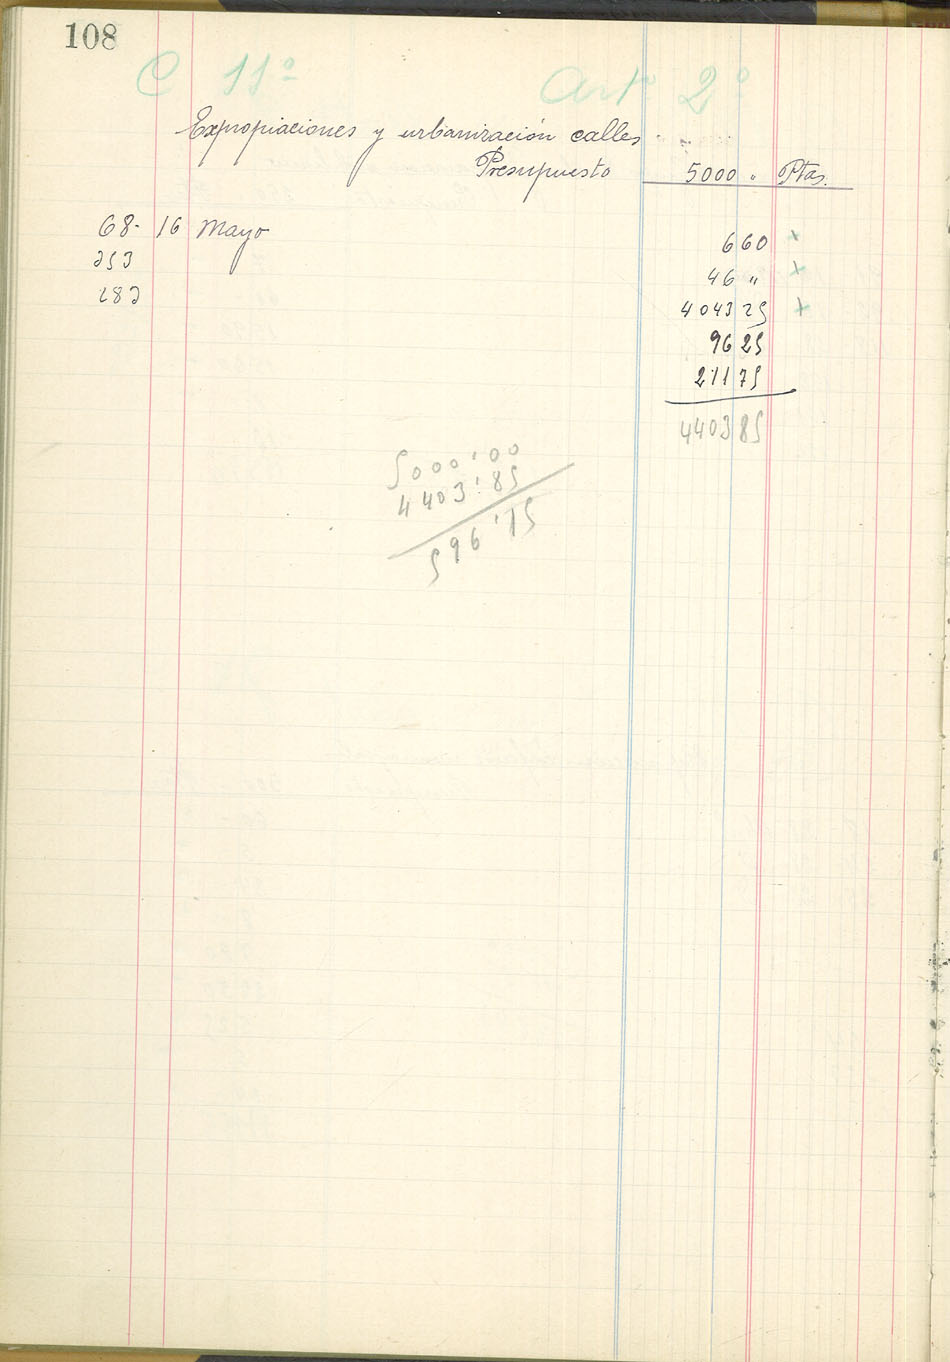 108
C 11º Artº 2º
Expropiaciones y urbanización calles
Presupuesto 5000 " Ptas.
68- 16 Mayo 6 60 x
253 46 " x
282 4043 25 x
96 25
211 75
4403 85
5000'00
4403'85
596'15